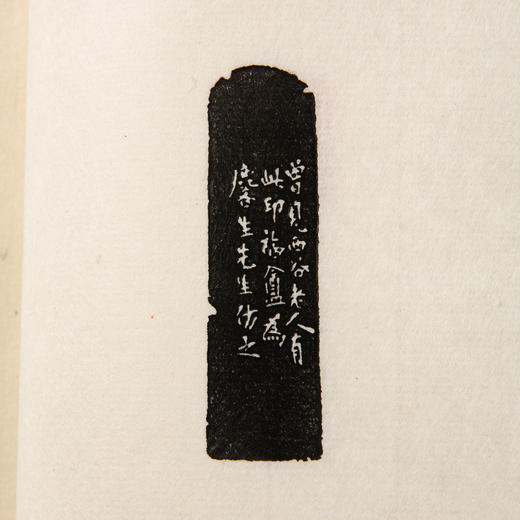 曾見西谷老人有
此印福盦為
麐生先生仿之